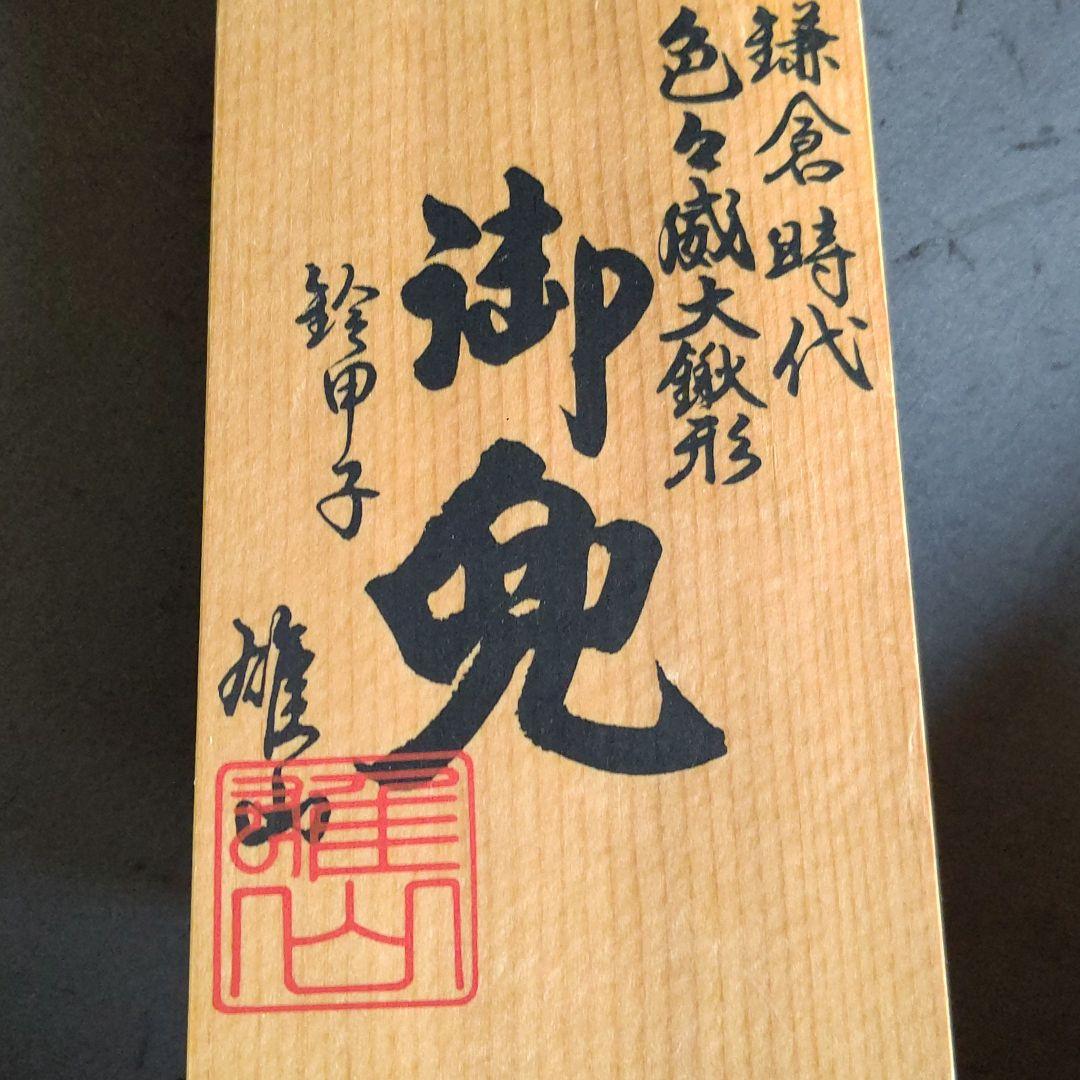 鎌倉時代
色々威大鍬形
御兜
鈴甲子
雄山
雄山